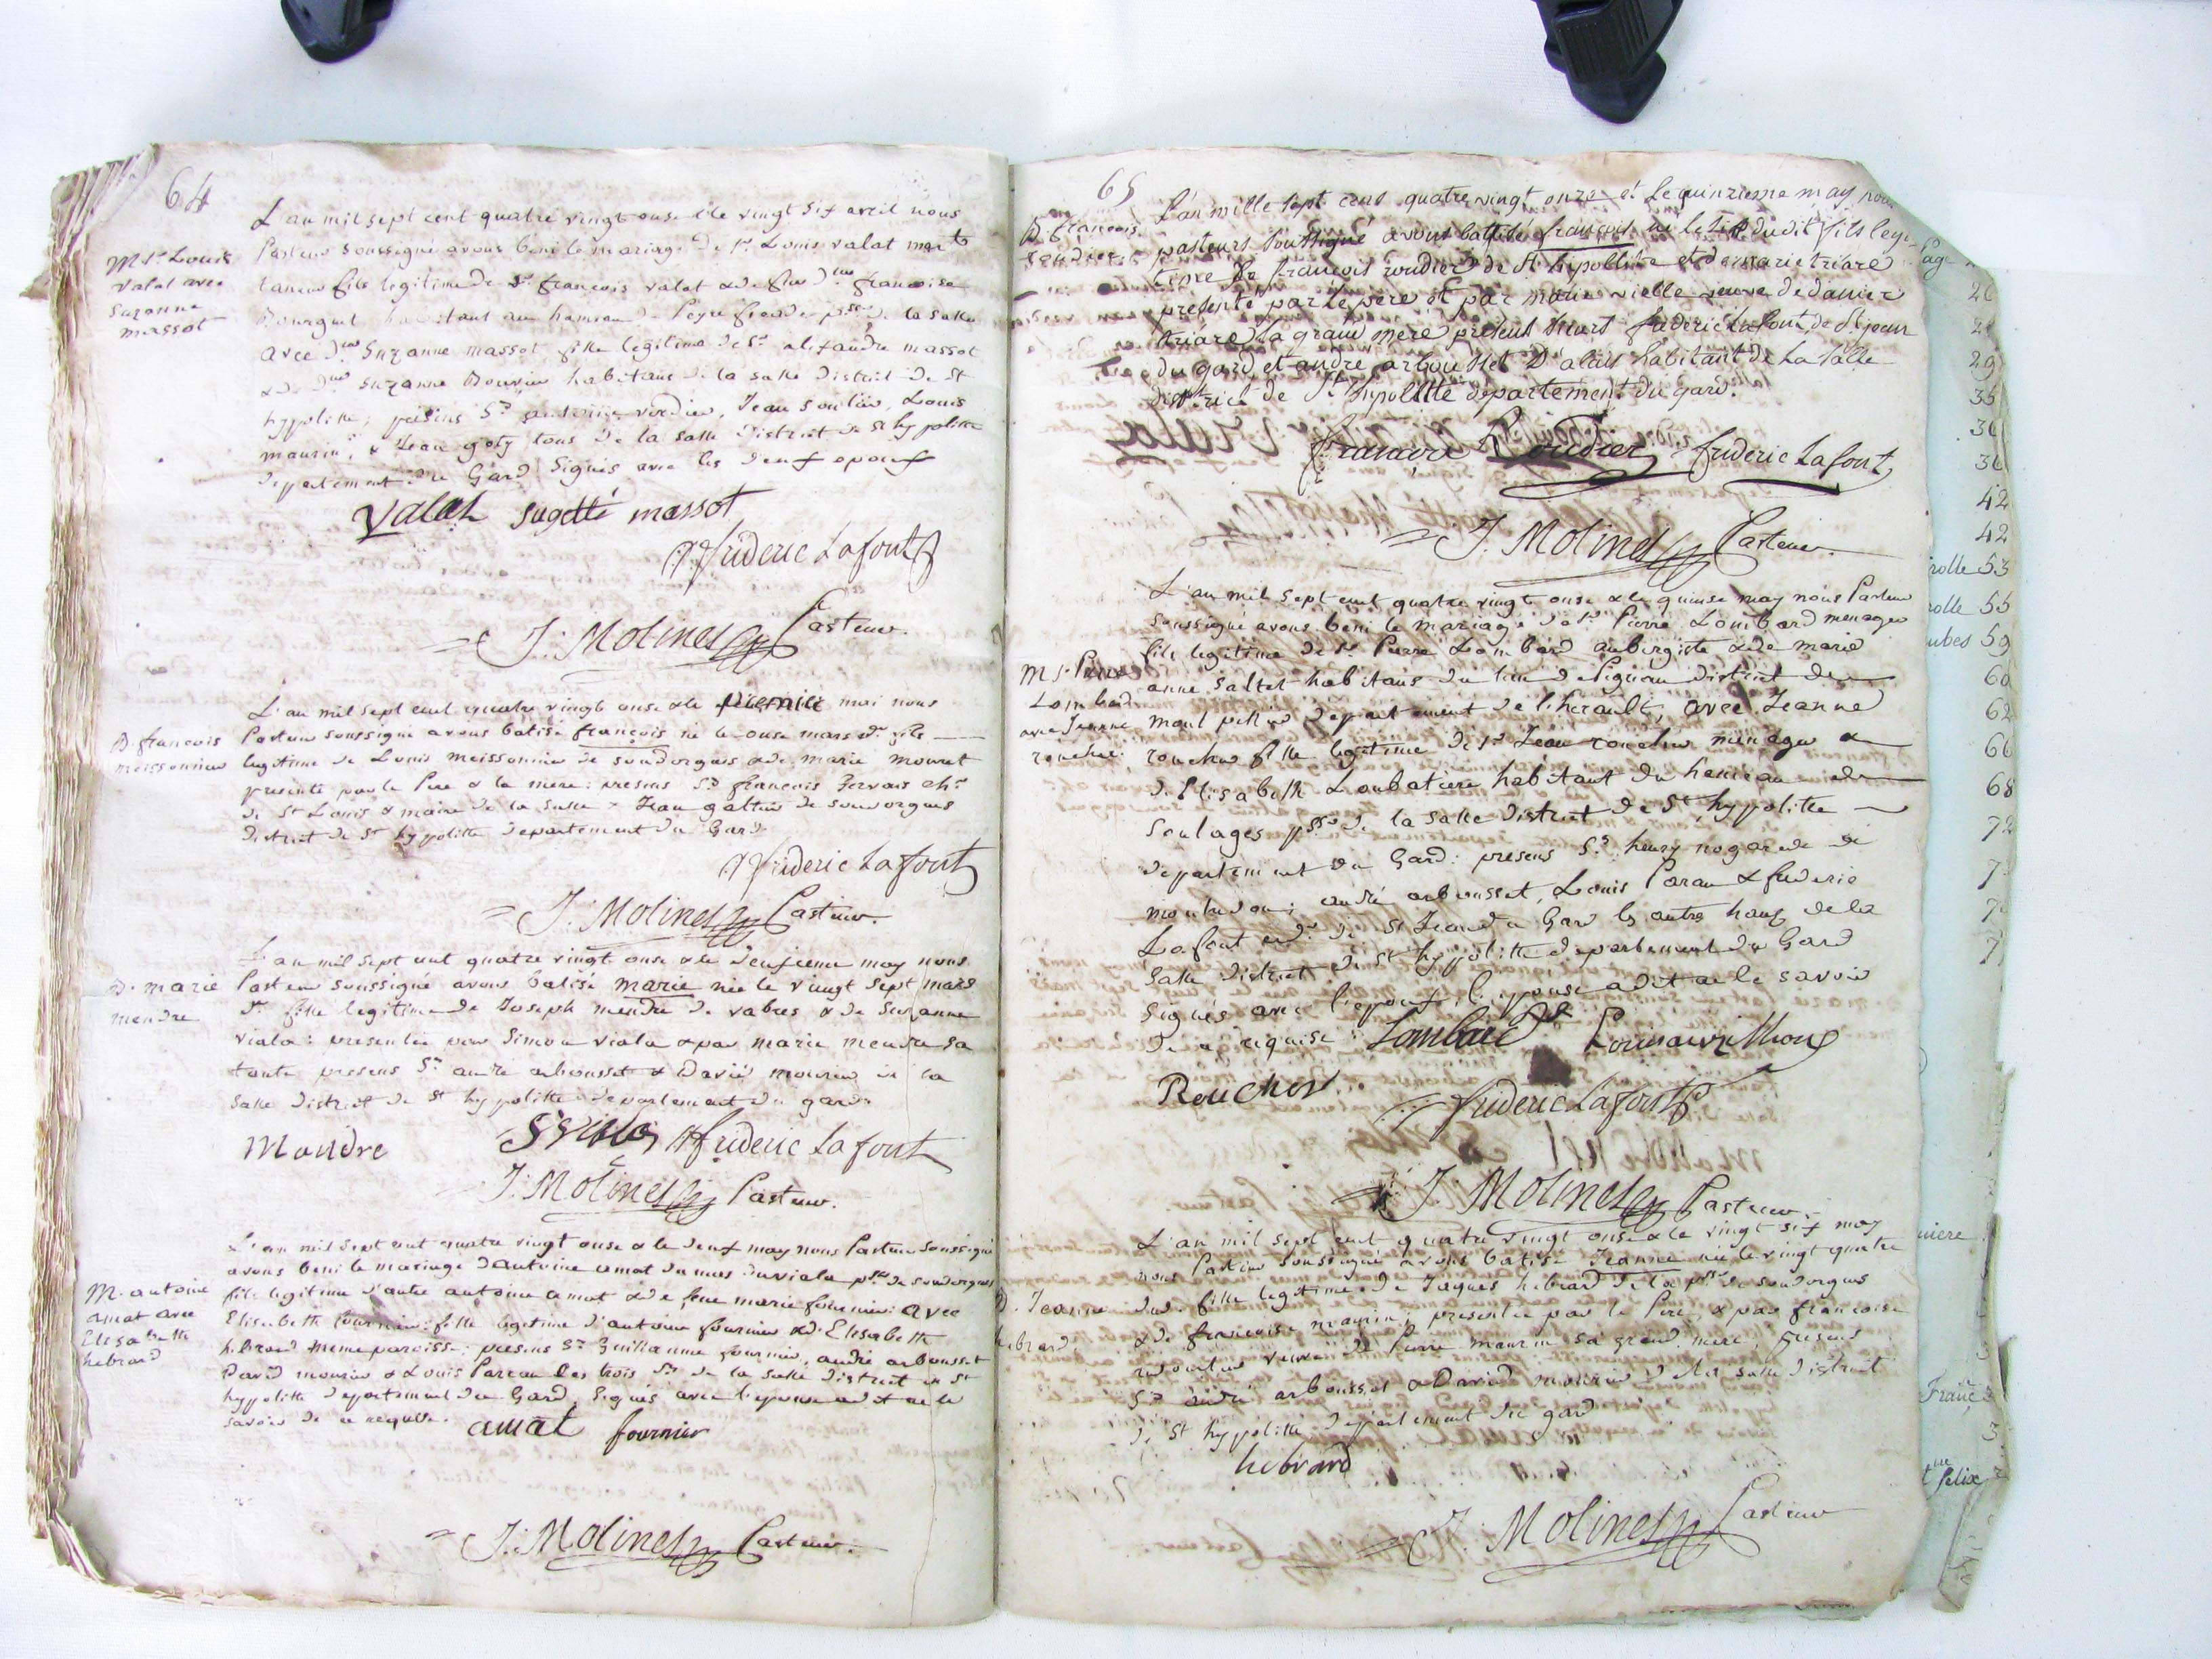 64
L'an mil sept cent quatre vingt onse & le vingt six avril nous
M Sr Louis
valat avec
Suzanne
massot
Pasteur soussigné avons béni le mariage de Sr Louis valat
fils legitime de Sr françois valat & de feue Dlle françoise
Bourguet habitant au hameau de Peyre psse de la salle
avec Dlle Suzanne massot fille legitime de Sr alexandre massot
& de Dlle Suzanne Bouvier habitans de la salle District de St
hypolitte; presens Srs verdier, Jean soulier, Louis
maurin, & Jean goty tous de la salle District de St hypolitte
departement du Gard Signés avec les deux epoux
Valat sugette massot
frideric Lafont
J. Molines Pasteur.
L'an mil sept cent quatre vingt onse & le mai nous
B. françois
meissonnier
Pasteur soussigné avons batisé françois né le onse mars dr fils
legitime de Louis meissonnier de soudorgues & de marie mouret
presenté par le Pere & la mere: presens Srs françois Gervais chr
de St Louis & maire de la salle & Jean galtier de soudorgues
District de St hypolitte departement du Gard
frideric Lafont
J. Molines Pasteur.
L'an mil sept cent quatre vingt onse & le deuxieme may nous
B. marie
mendre
Pasteur soussigné avons batisé marie née le vingt sept mars
dr fille legitime de Joseph mendre de vabres & de Suzanne
viala: presentée par Simon viala & par marie mendre sa
tante presens Srs andré arbousset & David mourier de la
salle District de St hypolitte departement du gard
Mandre S Viala frideric Lafont
J. Molines Pasteur.
L'an mil sept cent quatre vingt onse & le deux may nous Pasteur soussigné
M. antoine
amat avec
Elisabetth
hebrard
avons beni le mariage d'antoine amat du mas du viala psse de soudorgues
fils legitime d'autre antoine amat & de feue marie fournier: avec
Elisabetth fournier: fille legitime d'antoine fournier & d'Elisabetth
hebrard meme paroisse: presens Srs Guillaume fournier, andré arbousset
David mourier & Louis Pareau les trois drs de la salle District de St
hypolitte departement du Gard, Signés avec l'epouse a dit ne le
savoir de ce requise.
amat fournier
J. Molines Pasteur.
65
L'an mille sept cens quatre vingt onze et le quinzieme may nous
B. françois
roudier
pasteurs soussigné avons battisé françois né le dudit fils legi-
time de françois roudier de St hipollitte et de marie triare
presenté par le pere et par marie vielle veuve de daniel
triare La grand mere présens sieurs frideric Lafont de St jean
du gard et andré arbousset d'alais habitant de La Salle
district de St hipollitte departement du gard.
françois Roudier frideric Lafont
J. Molines Pasteur.
L'an mil sept cent quatre vingt onse & le quinse may nous Pasteur
soussigné avons beni le mariage de Sr Pierre Lombard menager
M S. Pierre
Lombard
avec Jeanne
roucher
fils legitime de Sr Pierre Lombard aubergiste & de marie
anne saltet habitans du lieu de Pignan district de
montpellier departement de l'herault, avec Jeanne
roucher fille legitime de Sr Jean roucher menager &
d'Elisabeth Loubatiere habitant du hameau de
Soulages psse de la salle district de St hypolitte
departement du Gard: presens Srs henry nogarede de
andré arbousset, Louis Parau & frideric
Lafont de St Jean du Gard les autres hans de la
salle district de St hypolitte departement du Gard
Signés avec l'epoux, l'epouse a dit ne le savoir
de ce requise: Lombard
Roucher frideric Lafont
J. Molines Pasteur.
L'an mil sept cent quatre vingt onse & le vingt six may
B. Jeanne
hebrard.
nous Pasteur soussigné avons batisé Jeanne née le vingt quatre
dud. fille legitime de Jaques hebrard de la psse de soudorgues
& de françoise maurin; presentée par le Pere, & par françoise
veuve de Pierre maurin sa grand mere; presens
Srs andré arbousset & David mourier de la salle district
de St hypolitte departement du gard
hebrard
J. Molines Pasteur
Page
29
35
42
42
rolle 53
rolle 55
ubes 59
60
62
66
68
72
niere
Franc
felix